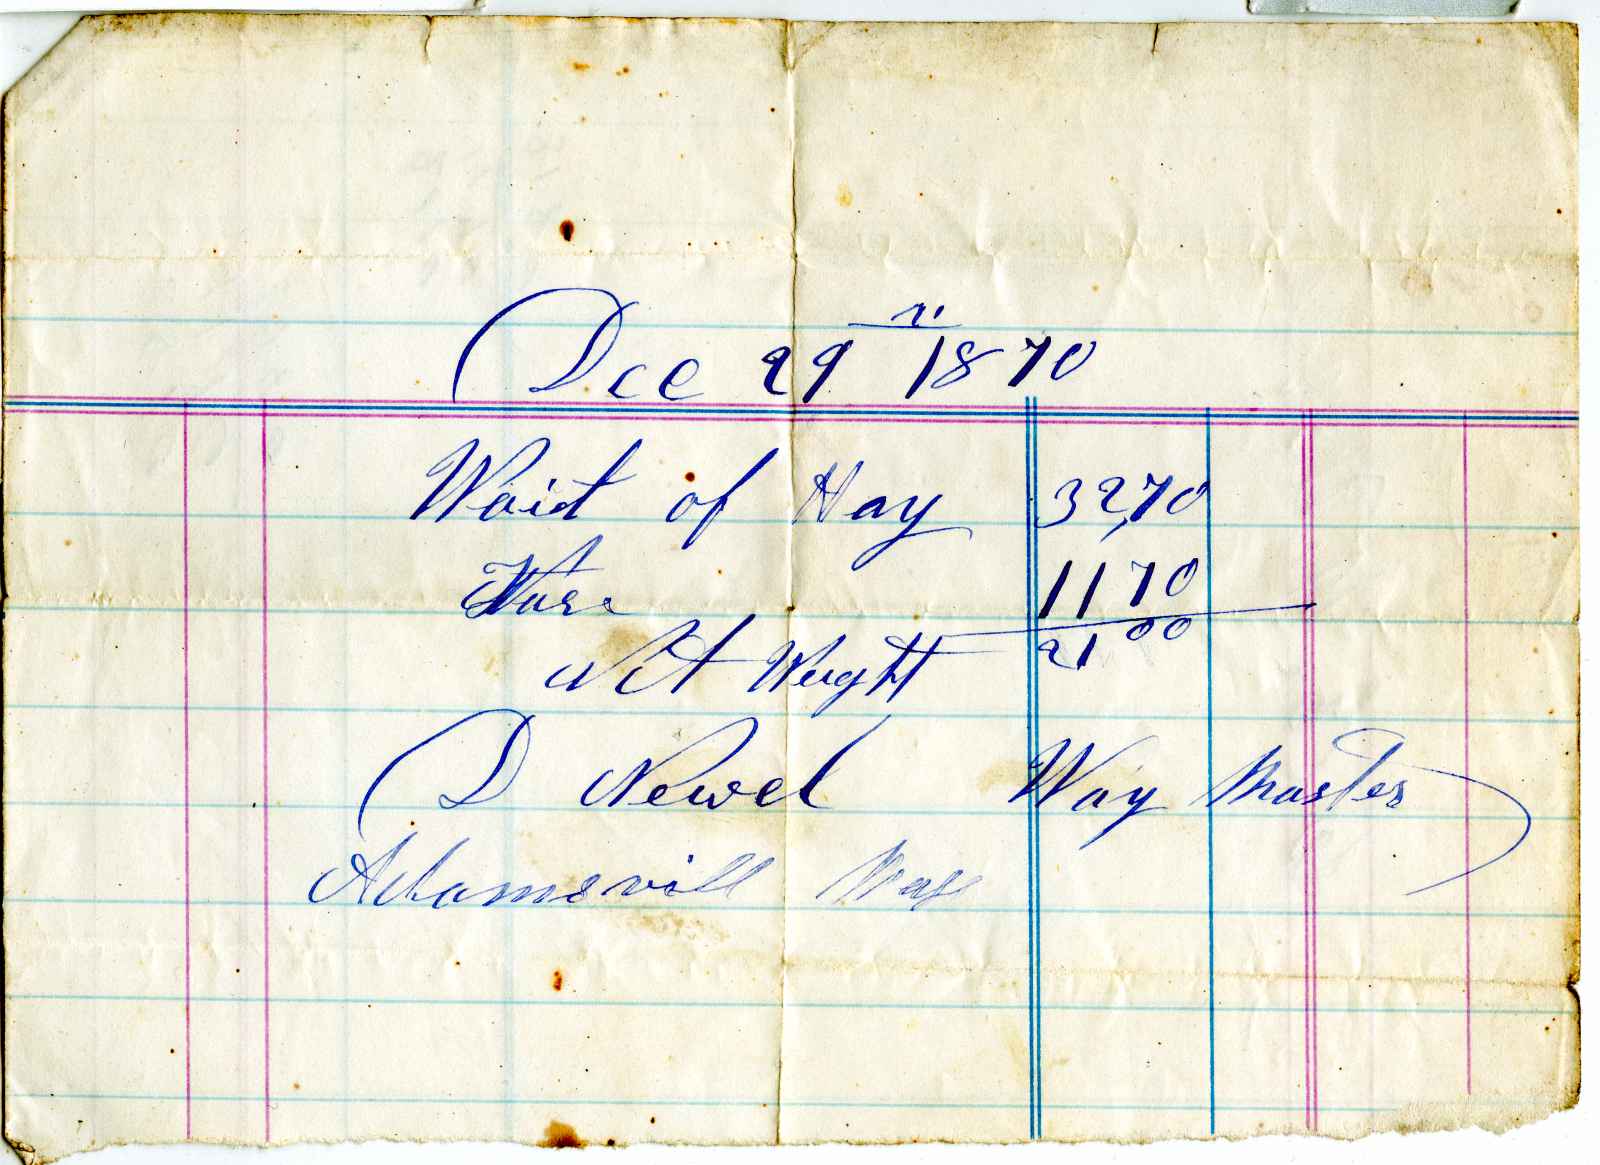 Dec 29 1870
Waid of Hay 3270
Tare 1170
Net Weight 2100
D Newel Way Master
Adamsvill Mass